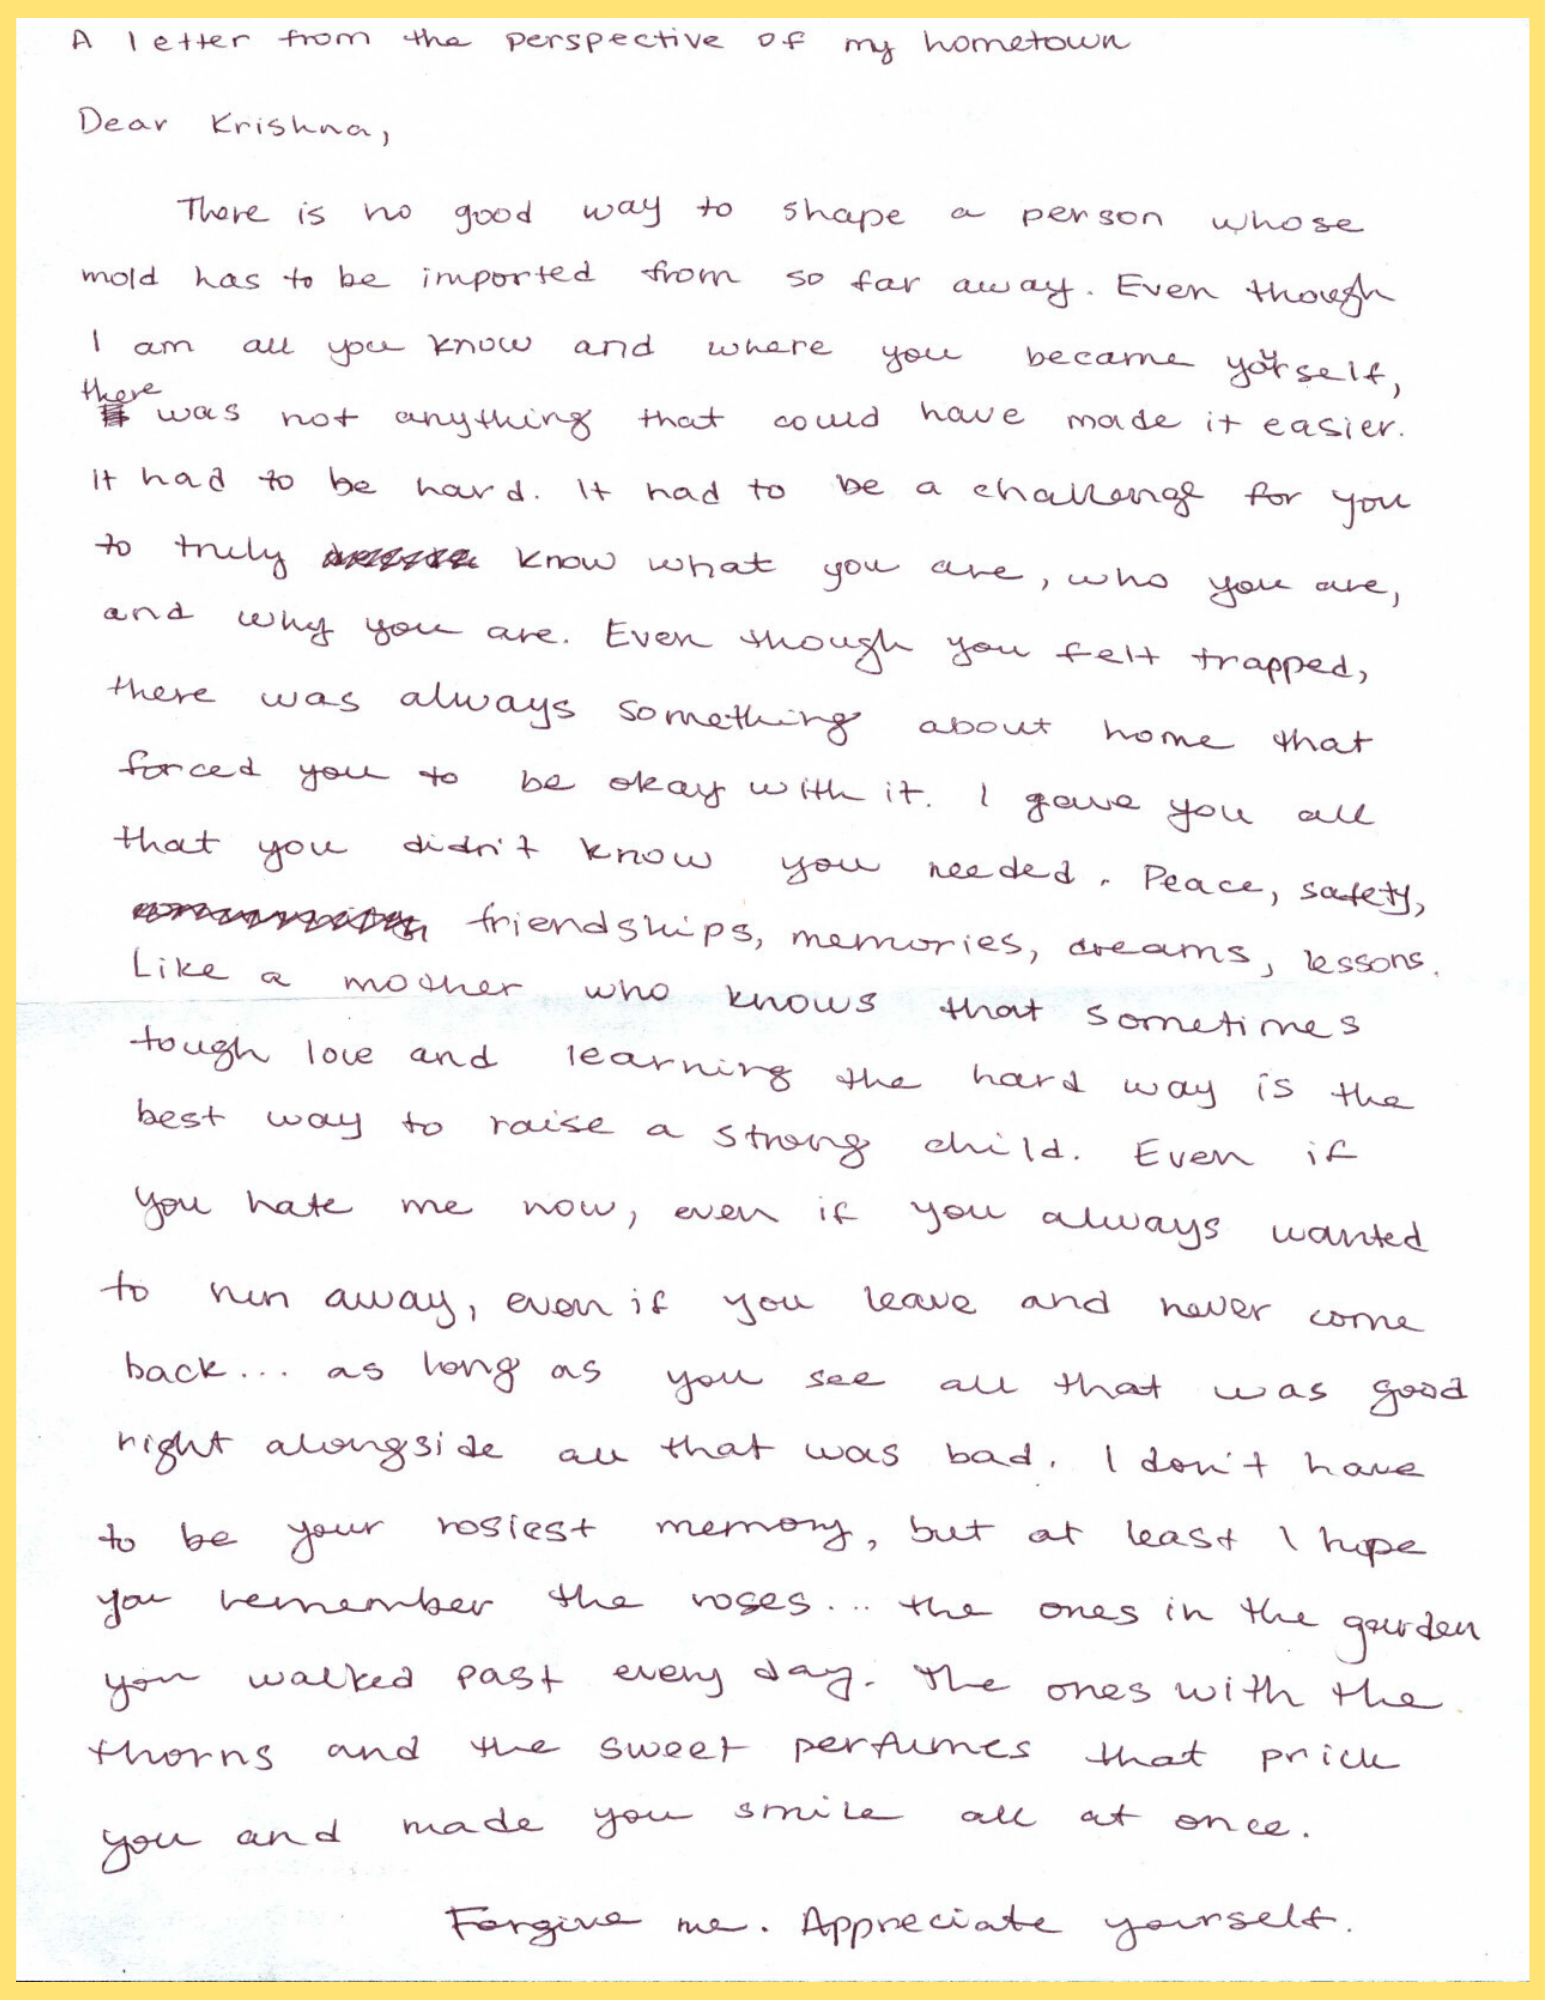 A letter from the perspective of my hometown
Dear Krishna,
There is no good way to shape a person whose
mold has to be imported from so far away. Even though
I am all you know and where you became yourself,
there was not anything that could have made it easier.
It had to be hard. It had to be a challenge for you
to truly know what you are, who you are,
and why you are. Even though you felt trapped,
there was always something about home that
forced you to be okay with it. I gave you all
that you didn't know you needed. Peace, safety,
friendships, memories, dreams, lessons.
Like a mother who knows that sometimes
tough love and learning the hard way is the
best way to raise a strong child. Even if
you hate me now, even if you always wanted
to run away, even if you leave and never come
back... as long as you see all that was good
right alongside all that was bad. I don't have
to be your rosiest memory, but at least I hope
you remember the roses... the ones in the garden
you walked past every day. The ones with the
thorns and the sweet perfumes that prick
you and made you smile all at once.
Forgive me. Appreciate yourself.